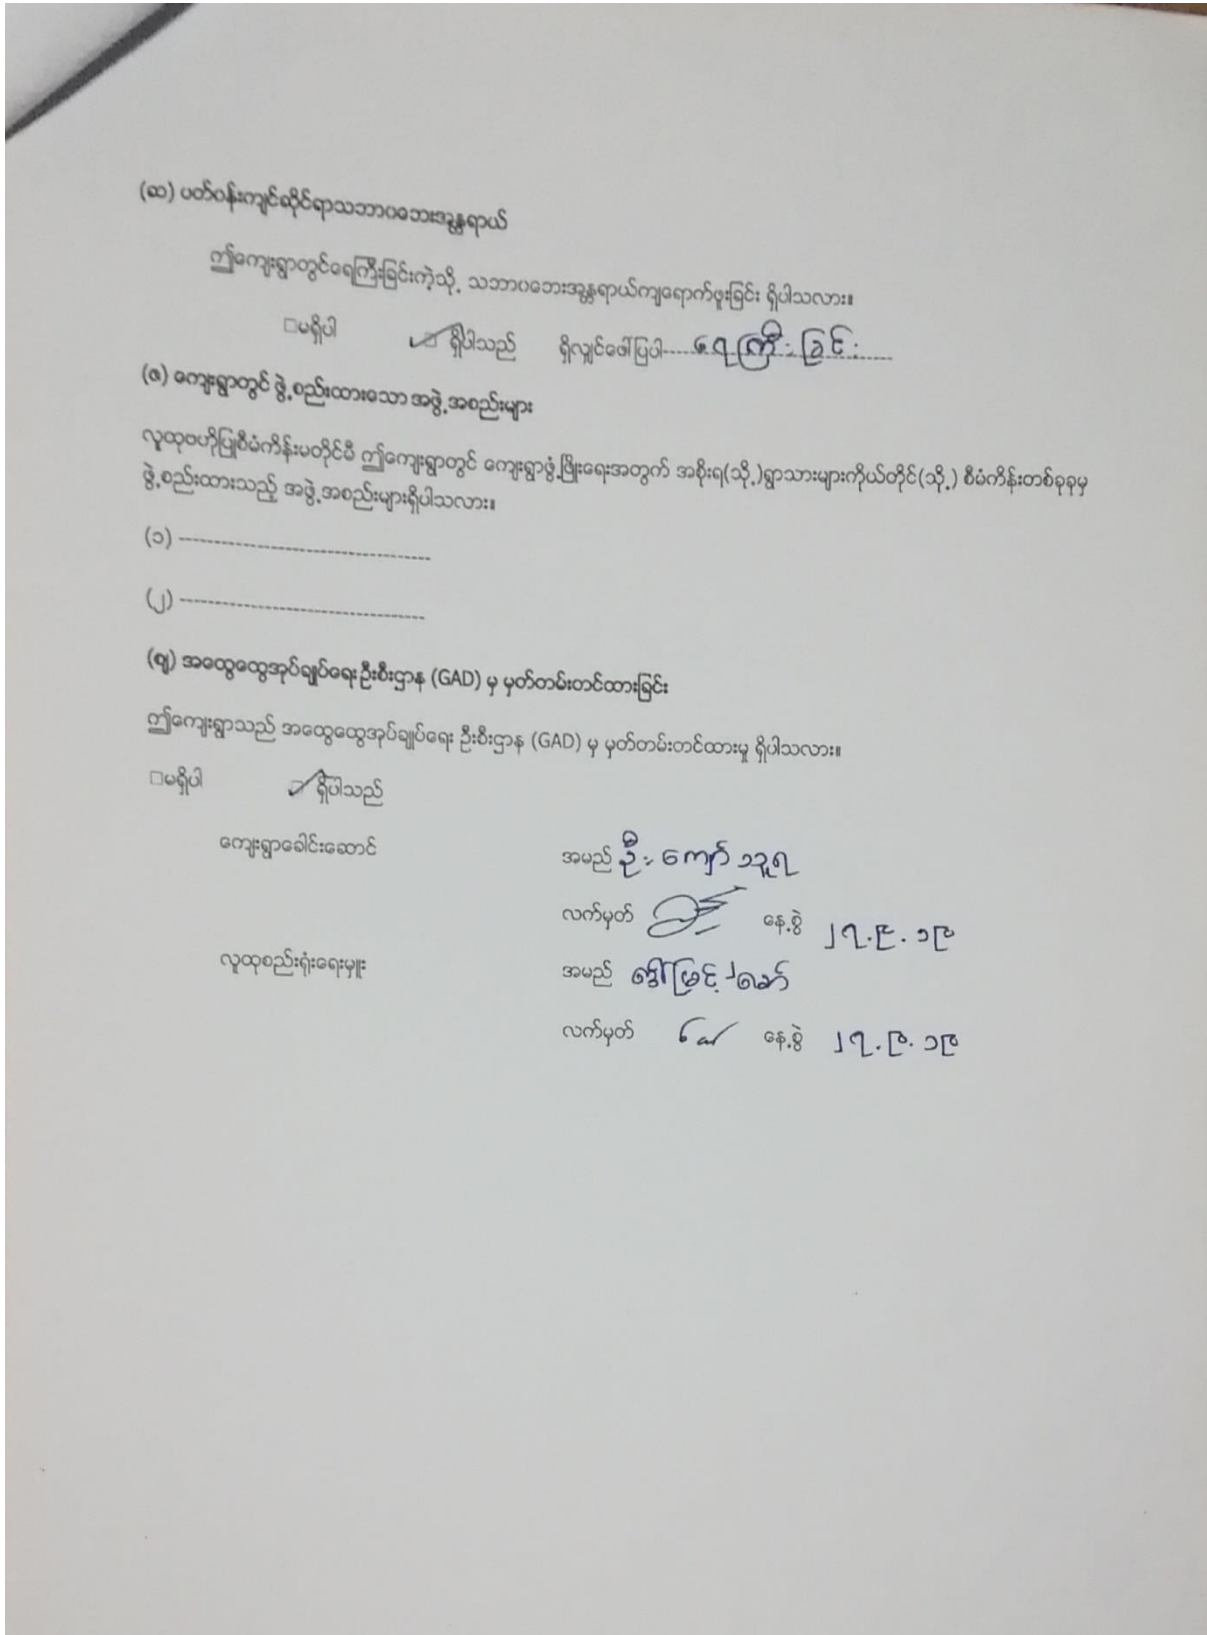 (ဆ) ပတ်ဝန်းကျင်ဆိုင်ရာသဘာဝဘေးအန္တရာယ်
ဤကျေးရွာတွင်ရေကြီးခြင်းကဲ့သို့ သဘာဝဘေးအန္တရာယ်ကျရောက်ဖူးခြင်း ရှိပါသလား။
□မရှိပါ ✓□ ရှိပါသည် ရှိလျှင်ဖေါ်ပြပါ-----ရေကြီးခြင်း-----
(ဇ) ကျေးရွာတွင် ဖွဲ့စည်းထားသော အဖွဲ့အစည်းများ
လူထုဗဟိုပြုစီမံကိန်းမတိုင်မီ ဤကျေးရွာတွင် ကျေးရွာဖွံ့ဖြိုးရေးအတွက် အစိုးရ(သို့)ရွာသားများကိုယ်တိုင်(သို့) စီမံကိန်းတစ်ခုခုမှ
ဖွဲ့စည်းထားသည့် အဖွဲ့အစည်းများရှိပါသလား။
(၁) -----------------------------------
(၂) -----------------------------------
(ဈ) အထွေထွေအုပ်ချုပ်ရေးဦးစီးဌာန (GAD) မှ မှတ်တမ်းတင်ထားခြင်း
ဤကျေးရွာသည် အထွေထွေအုပ်ချုပ်ရေး ဦးစီးဌာန (GAD) မှ မှတ်တမ်းတင်ထားမှု ရှိပါသလား။
□မရှိပါ ✓□ ရှိပါသည်
ကျေးရွာခေါင်းဆောင် အမည် ဦးကျော်သူရ
လက်မှတ် နေ့စွဲ ၂၇.၉.၁၉
လူထုစည်းရုံးရေးမှူး အမည် ဒေါ်မြင့်
လက်မှတ် နေ့စွဲ ၂၇.၉.၁၉